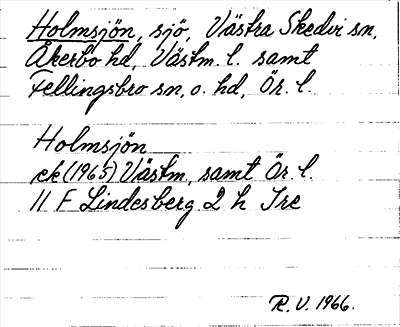 Holmsjön, sjö, Västra Skedvi sn,
Åkerbo hd, Västm. l. samt
Fellingsbro sn, o. hd, Ör. l.
Holmsjön
ek (1965) Västm, samt Ör. l.
11 F Lindesberg 2 h Tre
R.V. 1966.